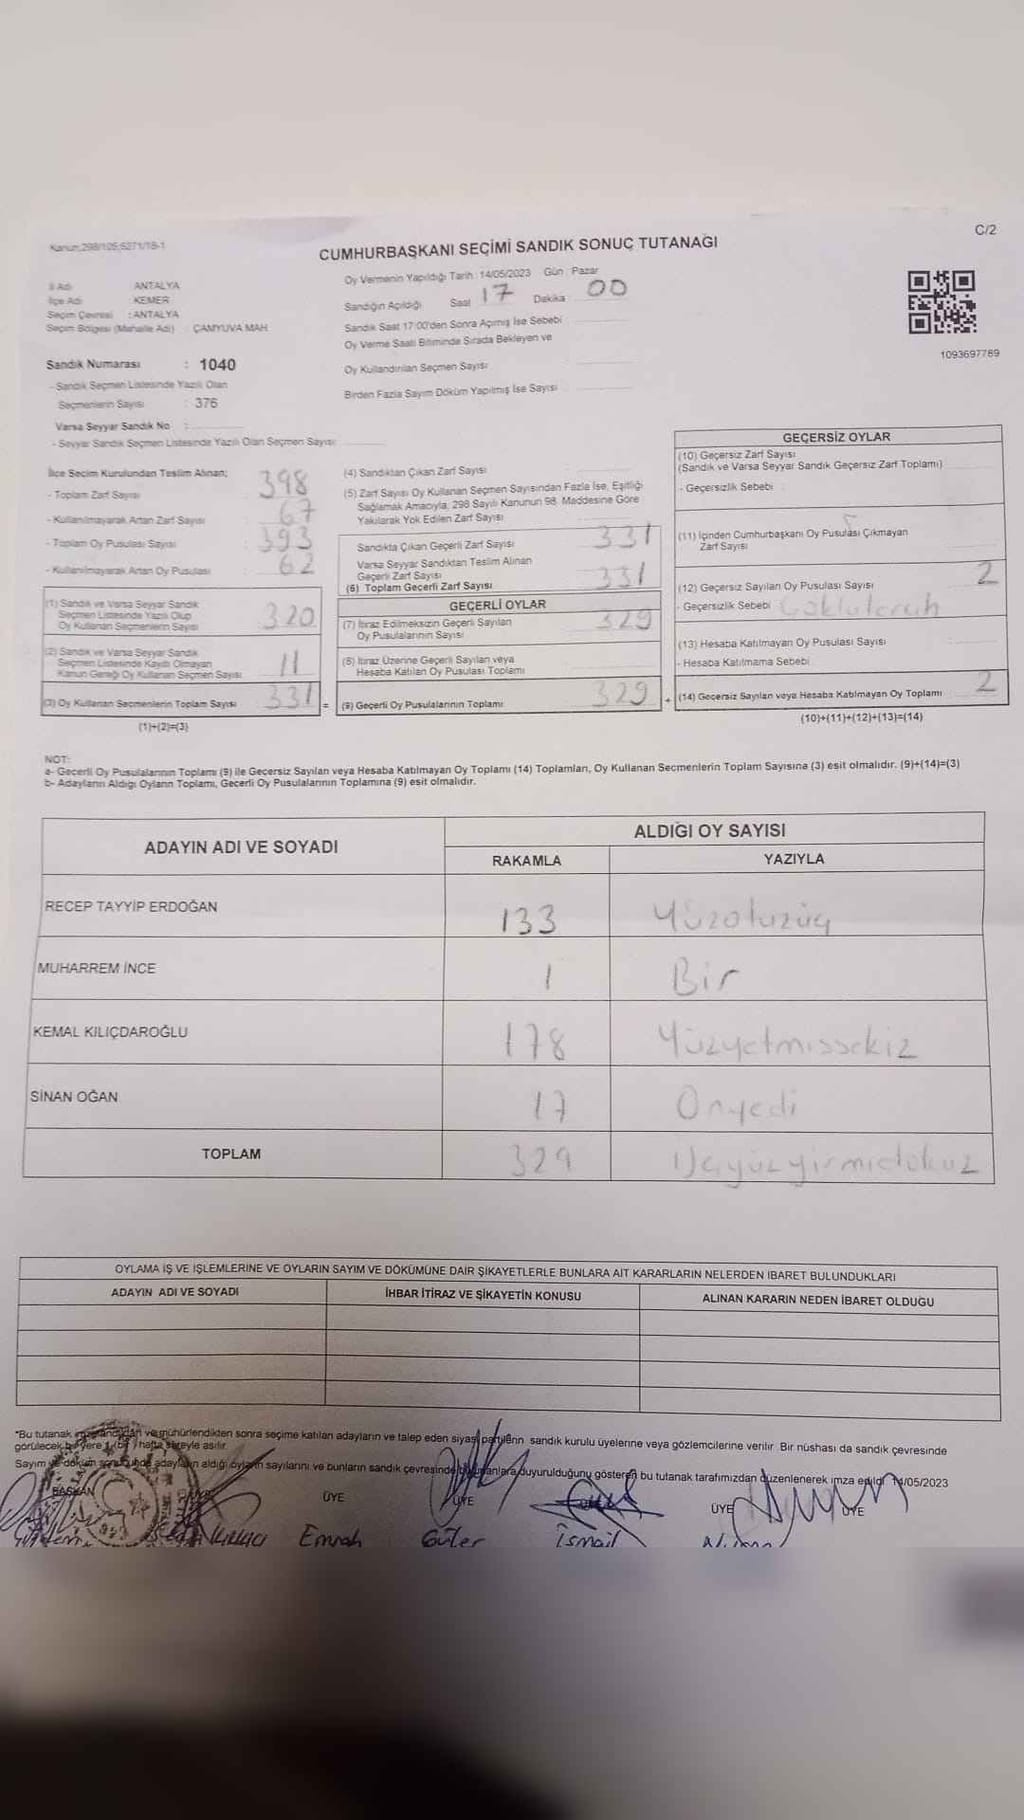 Kanun;298/105;6271/18-1
C/2
CUMHURBAŞKANI SEÇİMİ SANDIK SONUÇ TUTANAĞI
İl Adı ANTALYA
İlçe Adı KEMER
Seçim Çevresi : ANTALYA
Seçim Bölgesi (Mahalle Adı) : ÇAMYUVA MAH
Sandık Numarası : 1040
- Sandık Seçmen Listesinde Yazılı Olan
Seçmenlerin Sayısı : 376
Varsa Seyyar Sandık No :
- Seyyar Sandık Seçmen Listesinde Yazılı Olan Seçmen Sayısı
Oy Vermenin Yapıldığı Tarih : 14/05/2023 Gün : Pazar
Sandığın Açıldığı Saat 17 Dakika 00
Sandık Saat 17:00'den Sonra Açımış İse Sebebi
Oy Verme Saati Bitiminde Sırada Bekleyen ve
Oy Kullandırılan Seçmen Sayısı
Birden Fazla Sayım Döküm Yapılmış İse Sayısı
1093697769
İlçe Seçim Kurulundan Teslim Alınan;
- Toplam Zarf Sayısı 398
- Kullanılmayarak Artan Zarf Sayısı 67
- Toplam Oy Pusulası Sayısı 393
- Kullanılmayarak Artan Oy Pusulası 62
(1) Sandık ve Varsa Seyyar Sandık
Seçmen Listesinde Yazılı Olup
Oy Kullanan Seçmenlerin Sayısı 320
(2) Sandık ve Varsa Seyyar Sandık
Seçmen Listesinde Kayıtlı Olmayan
Kanun Gereği Oy Kullanan Seçmen Sayısı 11
(3) Oy Kullanan Seçmenlerin Toplam Sayısı 331 =
(1)+(2)=(3)
(4) Sandıktan Çıkan Zarf Sayısı
(5) Zarf Sayısı Oy Kullanan Seçmen Sayısından Fazla İse, Eşitliği
Sağlamak Amacıyla, 298 Sayılı Kanunun 98. Maddesine Göre
Yakılarak Yok Edilen Zarf Sayısı
Sandıkta Çıkan Geçerli Zarf Sayısı 331
Varsa Seyyar Sandıktan Teslim Alınan
Geçerli Zarf Sayısı
(6) Toplam Geçerli Zarf Sayısı 331
GEÇERLİ OYLAR
(7) İtiraz Edilmeksizin Geçerli Sayılan
Oy Pusulalarının Sayısı 329
(8) İtiraz Üzerine Geçerli Sayılan veya
Hesaba Katılan Oy Pusulası Toplamı
(9) Geçerli Oy Pusulalarının Toplamı 329 +
GEÇERSİZ OYLAR
(10) Geçersiz Zarf Sayısı
(Sandık ve Varsa Seyyar Sandık Geçersiz Zarf Toplamı)
- Geçersizlik Sebebi
(11) İçinden Cumhurbaşkanı Oy Pusulası Çıkmayan
Zarf Sayısı
(12) Geçersiz Sayılan Oy Pusulası Sayısı 2
- Geçersizlik Sebebi
(13) Hesaba Katılmayan Oy Pusulası Sayısı
- Hesaba Katılmama Sebebi
(14) Geçersiz Sayılan veya Hesaba Katılmayan Oy Toplamı 2
(10)+(11)+(12)+(13)=(14)
NOT:
a- Geçerli Oy Pusulalarının Toplamı (9) ile Geçersiz Sayılan veya Hesaba Katılmayan Oy Toplamı (14) Toplamları, Oy Kullanan Seçmenlerin Toplam Sayısına (3) eşit olmalıdır. (9)+(14)=(3)
b- Adayların Aldığı Oyların Toplamı, Geçerli Oy Pusulalarının Toplamına (9) eşit olmalıdır.
ADAYIN ADI VE SOYADI
ALDIĞI OY SAYISI
RAKAMLA YAZIYLA
RECEP TAYYİP ERDOĞAN 133 Yüzotuzüç
MUHARREM İNCE 1 Bir
KEMAL KILIÇDAROĞLU 178 Yüzyetmişsekiz
SİNAN OĞAN 17 Onyedi
TOPLAM 329 Üçyüzyirmidokuz
OYLAMA İŞ VE İŞLEMLERİNE VE OYLARIN SAYIM VE DÖKÜMÜNE DAİR ŞİKAYETLERLE BUNLARA AİT KARARLARIN NELERDEN İBARET BULUNDUKLARI
ADAYIN ADI VE SOYADI İHBAR İTİRAZ VE ŞİKAYETİN KONUSU ALINAN KARARIN NEDEN İBARET OLDUĞU
*Bu tutanak imzalandıktan ve mühürlendikten sonra seçime katılan adayların ve talep eden siyasi partilerin sandık kurulu üyelerine veya gözlemcilerine verilir. Bir nüshası da sandık çevresinde
görülecek bir yere 1 (bir) hafta süreyle asılır.
Sayım ve döküm sonucunda adayların aldığı oyların sayılarını ve bunların sandık çevresinde bulunanlara duyurulduğunu gösteren bu tutanak tarafımızdan düzenlenerek imza edildi. 14/05/2023
BAŞKAN ÜYE ÜYE ÜYE ÜYE
Emrah Güler İsmail